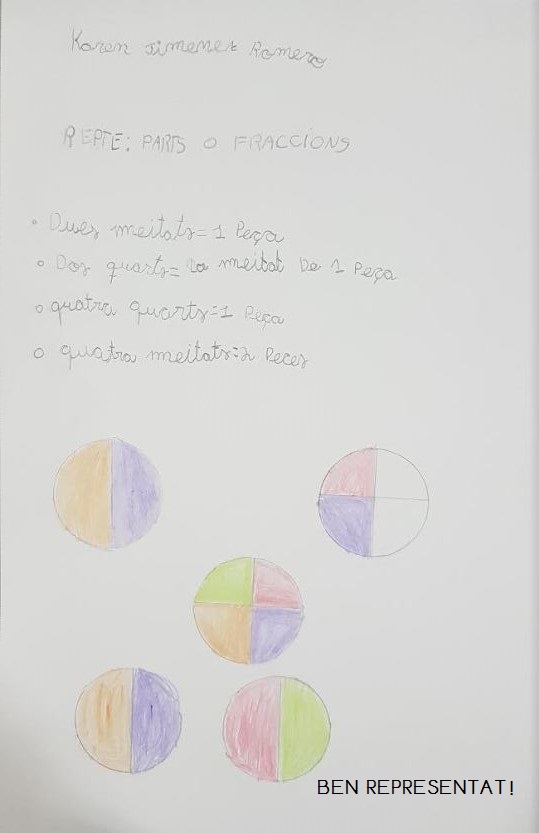 Karen Jimenez Romero
REPTE: PARTS O FRACCIONS
• Dues meitats=1 Peça
• Dos quarts= la meitat De 1 Peça
• quatra quarts=1 Peça
• quatra meitats=2 Peces
BEN REPRESENTAT!